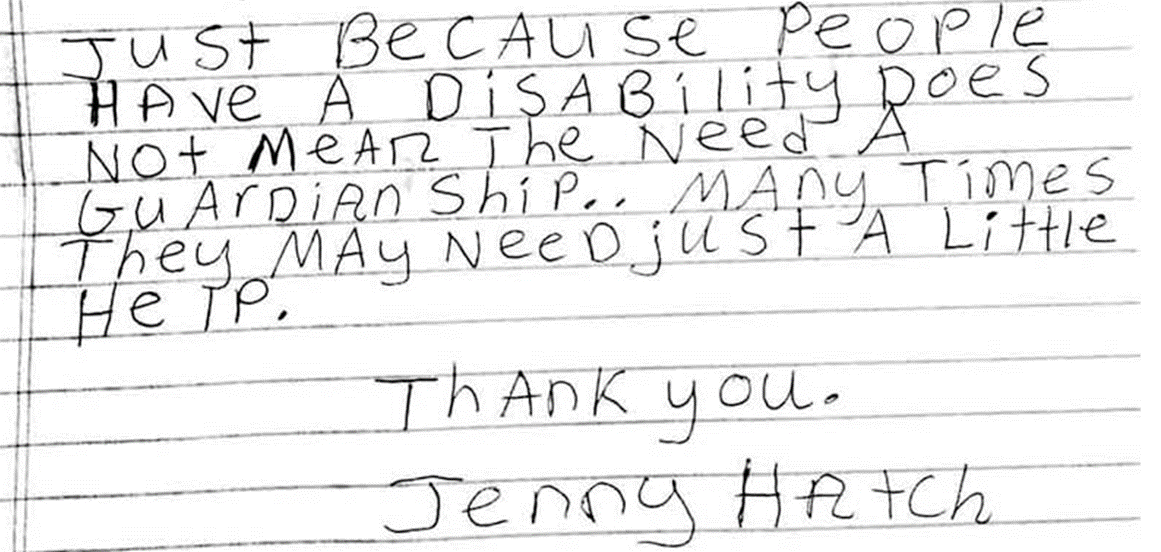 Just BeCAuse PeoPle
HAve A DiSABility Does
Not MeAn The Need A
GuArDiAn Ship.. MAny Times
They MAy NeeD just A Little
HelP.
ThAnk you.
Jenny HAtch